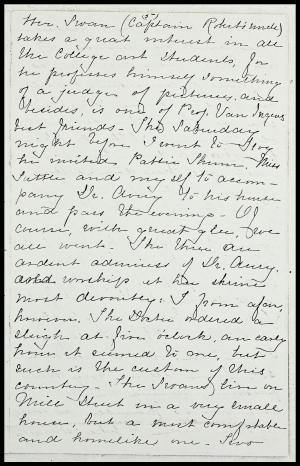 Mr. Swan (Captain Roberts' uncle)
takes a great interest in all
the College art students, for
he professes himself something
of a judge of pictures, and
besides, is one of Prof. Van Ingen's
best friends - The Saturday
night before I went to Troy
he invited Pattie Skinner, Miss
Tuttle and myself to accom-
pany Dr. Avery to his house
and pass the evening - Of
course, with great glee, we
all went - The three are
ardent admirers of Dr. Avery,
and worship at her shrine
most devoutly: I from afar,
however. The Doctor ordered a
sleigh at five o'clock, an early
hour it seemed to me, but
such is the custom of this
country - The Swans live on
Mill Street in a very small
house, but a most comfortable
and homelike one - Two